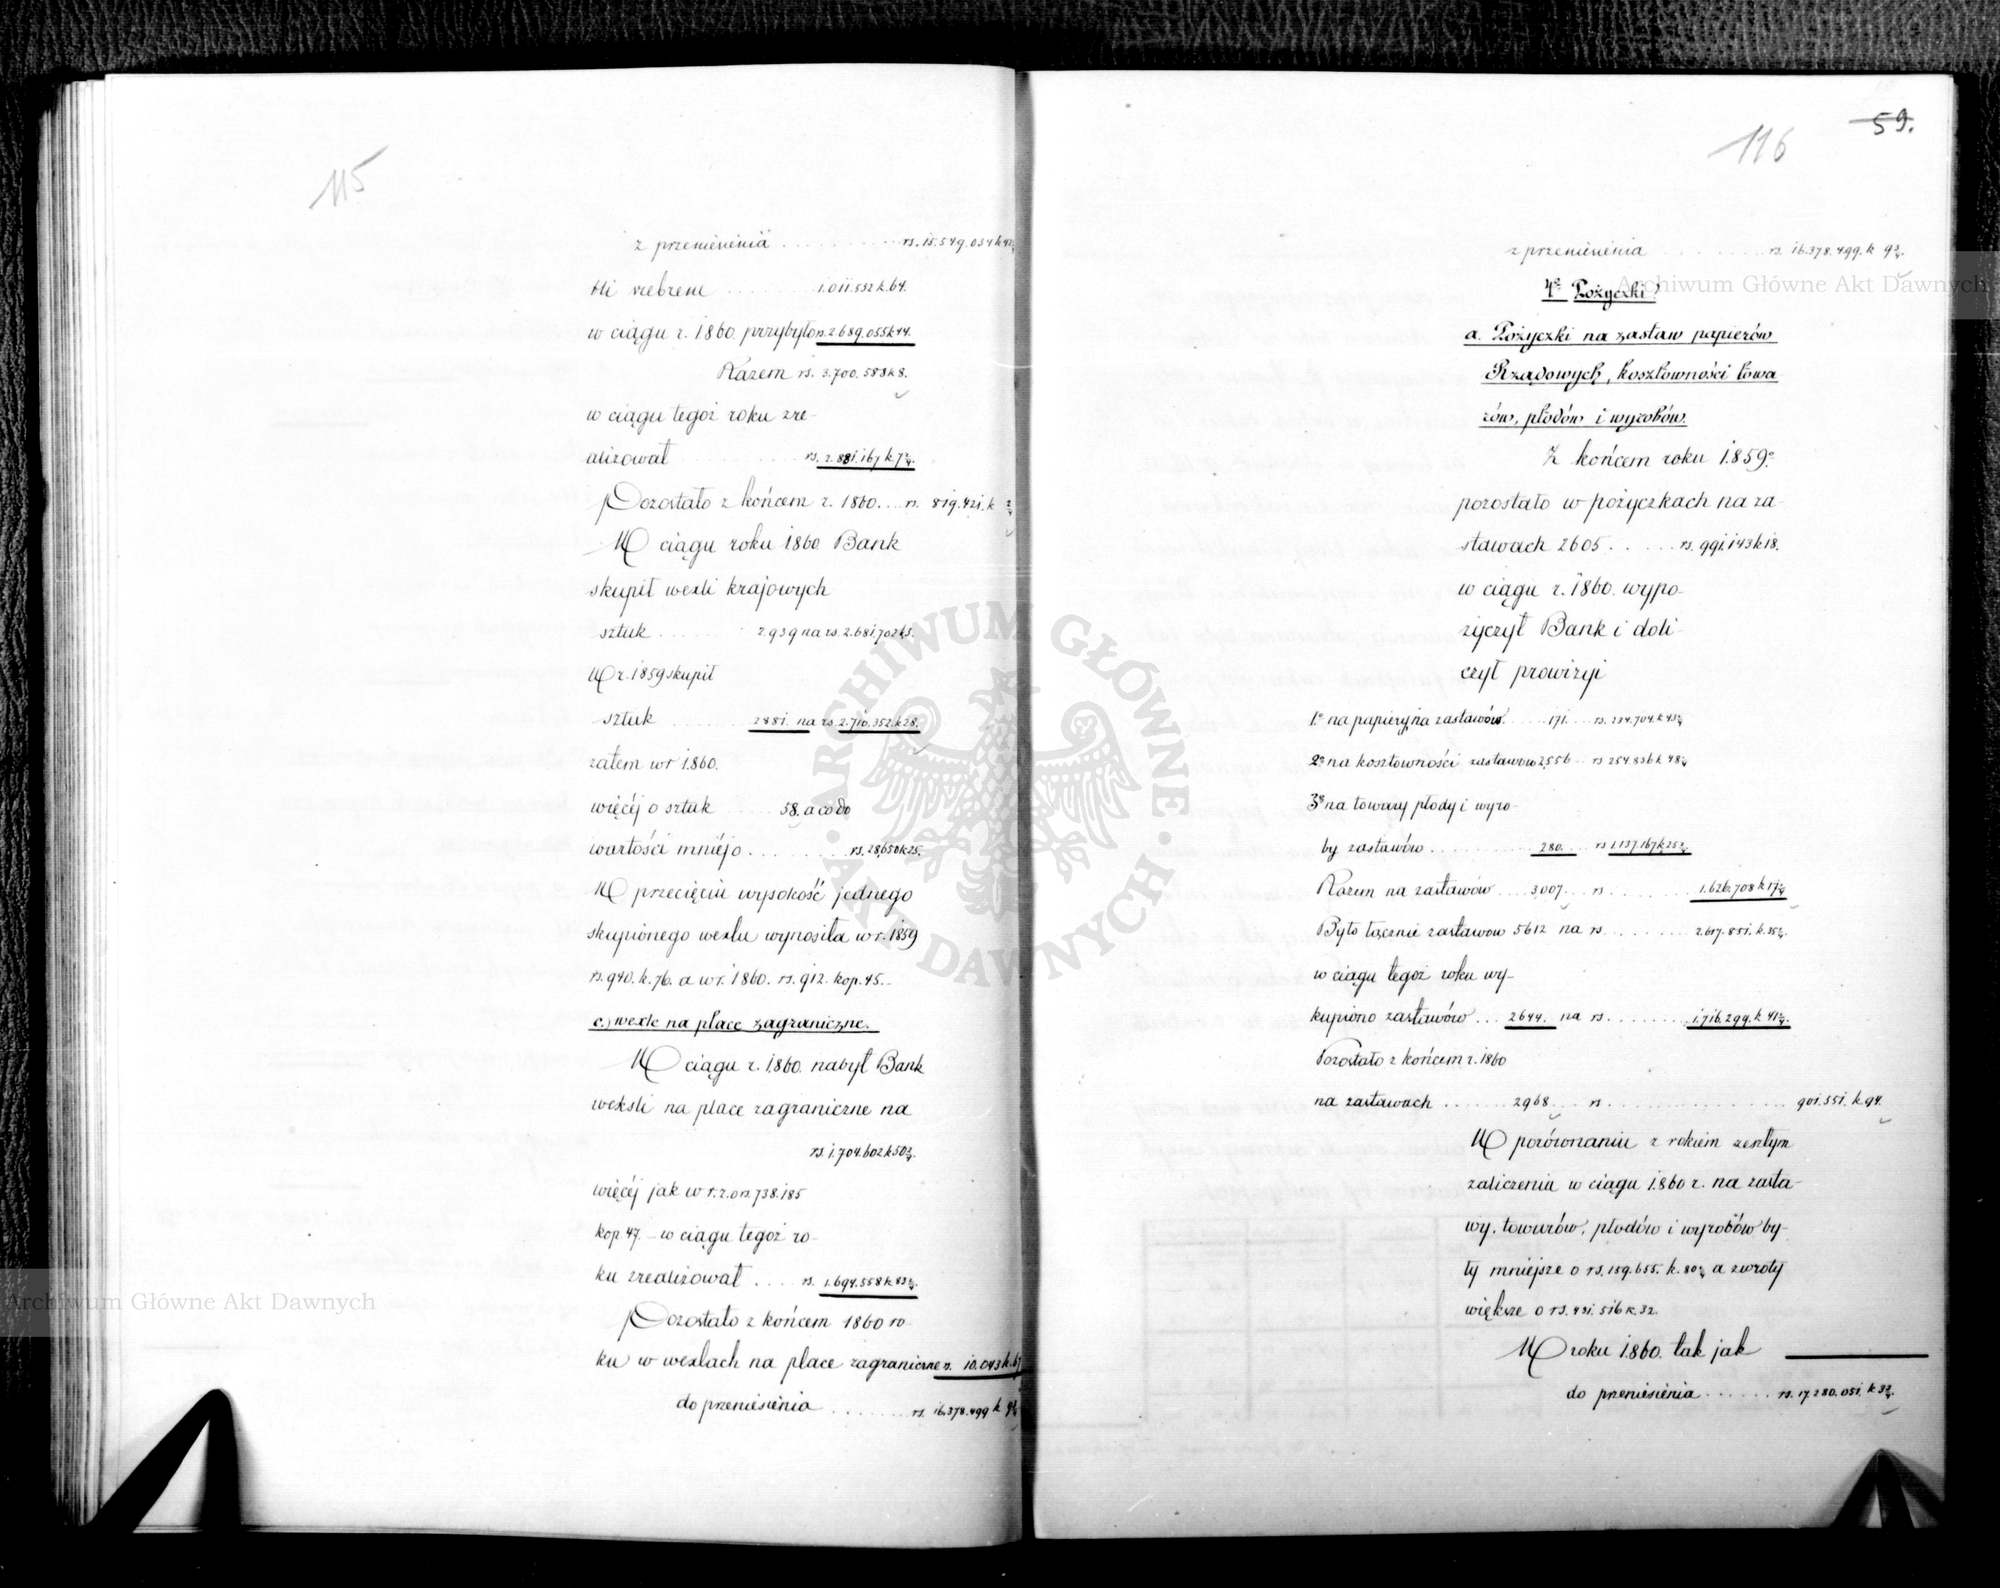 115
z przeniesienia . . . . . . . . . . rs. 15.549.034 k 42¾
bli srebrem . . . . . . . . 1.011.532 k. 64.
w ciągu r. 1860. przybyło rs. 2.689.055 k 44.
Razem rs. 3.700.588 k 8.
w ciągu tegoż roku zre-
alizował rs. 2.881.167 k. 7¾.
Pozostało z końcem r. 1860. . . . rs. 819.421. k ¾
W ciągu roku 1860 Bank
skupił wexli krajowych
sztuk . . . . . . . 2939 na rs. 2.681.702 k 3.
W r. 1859 skupił
sztuk . . . . . . . 2881. na rs. 2.710.352. k 28.
zatem w r 1860.
więcéj o sztuk . . . . . 58. a co do
wartości mniéj o . . . . . . . . rs. 28.650 k 25.
W przecięciu wysokość jednego
skupionego wexlu wynosiła w r. 1859
rs. 940. k. 76. a w r. 1860. rs. 912. kop. 45.
c.) wexle na place zagraniczne.
W ciągu r. 1860. nabył Bank
weksli na place zagraniczne na
rs. 1.704.602 k 50¾.
więcéj jak w r. z. o rs. 738.185
kop 47. – w ciągu tegoż ro-
ku zrealizował . . . . rs. 1.694.558 k. 83¾.
Pozostało z końcem 1860 ro-
ku w wexlach na place zagraniczne rs. 10.043 k. 67
do przeniesienia . . . . . . . . rs. 16.378.499 k 9¾
59.
116
z przeniesienia . . . . . . . . . rs. 16.378.499. k 9¾.
4º Pożyczki.
a. Pożyczki na zastaw papierów
Rządowych, kosztowności towa-
rów, płodów i wyrobów.
Z końcem roku 1859º
pozostało w pożyczkach na za-
stawach 2605 . . . . . . rs. 991.143 k 18.
w ciągu r. 1860. wypo-
życzył Bank i doli-
czył prowizyi
1º na papiery, na zastawów . . . . . 171. . . . rs. 234.704. k 43¾
2º na kosztowności zastawów 2,556 . . rs 254.836 k 48¾
3º na towary płody i wyro-
by zastawów . . . . . . . . . . 280. . . . rs 1.137.167 k 25¾.
Razem na zastawów . . . 3,007 . . . rs . . . . . . . 1.626.708 k 17¾
Było łącznie zastawów 5612 na rs . . . . . . . 2.617.851. k. 35¾.
w ciągu tegoż roku wy-
kupiono zastawów . . . 2644. na rs. . . . . . . . 1.716.299. k 41¾.
Pozostało z końcem r. 1860
na zastawach . . . . . . . 2968. . . . rs . . . . . . . . . . . . . . . . 901.551. k. 94.
W porównaniu z rokiem zeszłym
zaliczenia w ciągu 1860 r. na zasta-
wy. towarów, płodów i wyrobów by-
ły mniejsze o rs. 159.655. k. 80¾ a zwroty
większe o rs. 431.516 k. 32.
W roku 1860. tak jak
do przeniesienia . . . . . . . rs. 17.280.051. k 3¾.
Archiwum Główne Akt Dawnych
Archiwum Główne Akt Dawnych
ARCHIWUM GŁÓWNE · AKT DAWNYCH ·